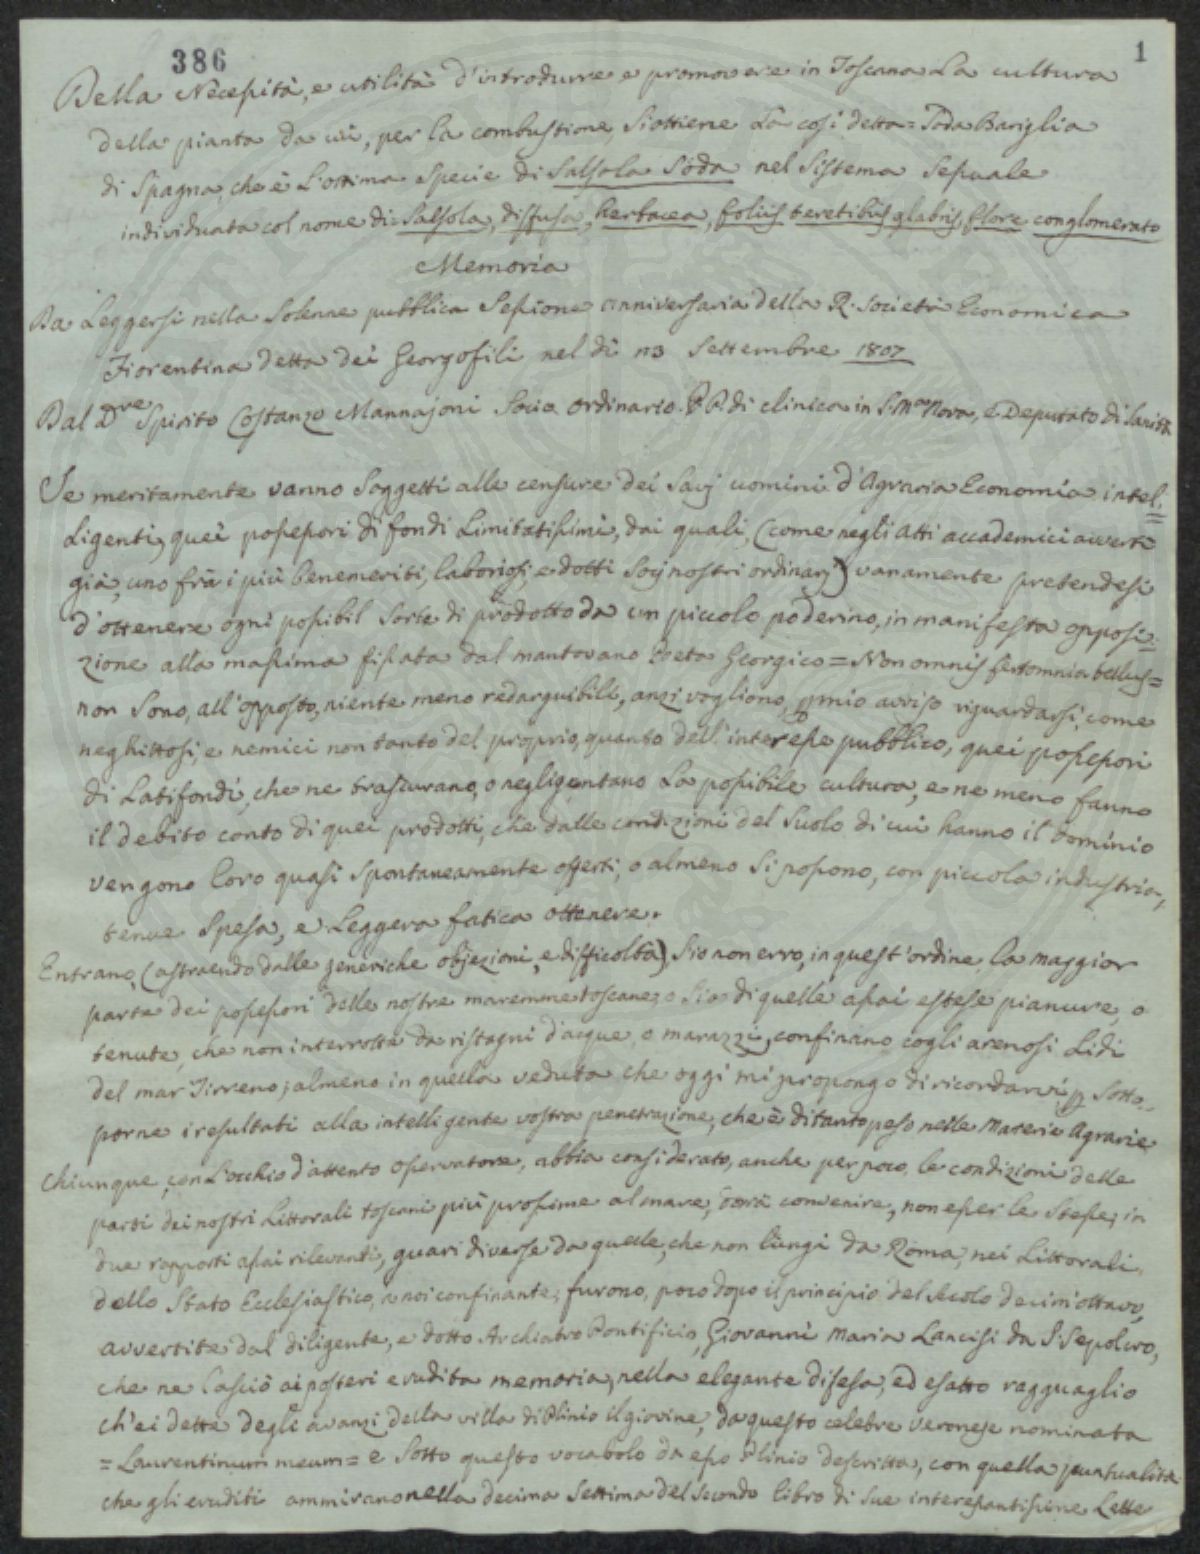 386
1
Della Necessità, e utilità d'introdurre e promovere in Toscana La cultura
della pianta da cui, per la combustione, Si ottiene La così detta = Soda Bariglia
di Spagna, che è L'ottima Specie di Salsola Soda nel Sistema Sessuale
individuata col nome di Salsola, diffusa, herbacea, foliis teretibus glabris, flore conglomerato
Memoria
Da Leggersi nella Solenne pubblica Sessione anniversaria della R. Società Economica
Fiorentina detta dei Georgofili nel dì 13 Settembre 1807
Dal Dre Spirito Costanzo Mannajoni Socio ordinario. P.P. di clinica in S. Ma Nova, e Deputato di Sanità
Se meritamente vanno Soggetti alle censure dei Savj uomini d'Agraria Economia intel:
Ligenti, quei possessori di fondi Limitatissimi, dai quali, (come negli Atti accademici avvertì
già, uno frà i più benemeriti, laboriosi, e dotti Socj nostri ordinarj) vanamente pretendesi
d'ottenere ogni possibil Sorte di prodotto da un piccolo poderino, in manifesta opposi:
zione alla massima fissata dal mantovano Poeta Georgico = Non omnis fert omnia tellus =
non Sono, all'opposto, niente meno redarguibili, anzi vogliono, p mio avviso riguardarsi, come
neghittosi, e nemici non tanto del proprio, quanto dell'interesse pubblico, quei possessori
di Latifondi, che ne trascurano, o negligentano La possibile cultura, e ne meno fanno
il debito conto di quei prodotti, che dalle condizioni del Suolo di cui hanno il dominio
vengono loro quasi Spontaneamente offerti, o almeno Si possono, con piccola industria,
tenue Spesa, e Leggera fatica ottenere.
Entrano, (astraendo dalle generiche objezioni, e difficoltà) Sio non erro, in quest'ordine, la maggior
parte dei possessori delle nostre maremme toscane, o Sia di quelle assai estese pianure, o
tenute, che non interrotte da ristagni d'acque, o marazzi, confinano cogli arenosi Lidi
del mar Tirreno; almeno in quella veduta che oggi mi propongo di ricordarvi, p Sotto..
porne i resultati alla intelligente vostra penetrazione, che è di tanto peso nelle Materie Agrarie
Chiunque, con L'occhio d'attento Osservatore, abbia considerato, anche per poco, le condizioni delle
parti dei nostri Littorali toscani più prossime al mare, dovrà convenire, non esser le Stesse, in
due rapporti assai rilevanti, guari diverse da quelle, che non lungi da Roma, nei Littorali
dello Stato Ecclesiastico, a noi confinante, furono, poco dopo il principio del Secolo decimottavo,
avvertite dal diligente, e dotto Archiatro Pontificio, Giovanni Maria Lancisi da S. Sepolcro,
che ne lasciò ai posteri erudita memoria, nella elegante difesa, ed esatto ragguaglio
ch'ei dette degli avanzi della villa di Plinio il giovine, da questo celebre Veronese nominata
= Laurentinum meum = e Sotto questo vocabolo da esso Plinio descritta, con quella puntualità
che gli eruditi ammirano nella decima Settima del Secondo libro di Sue interessantissime Lette